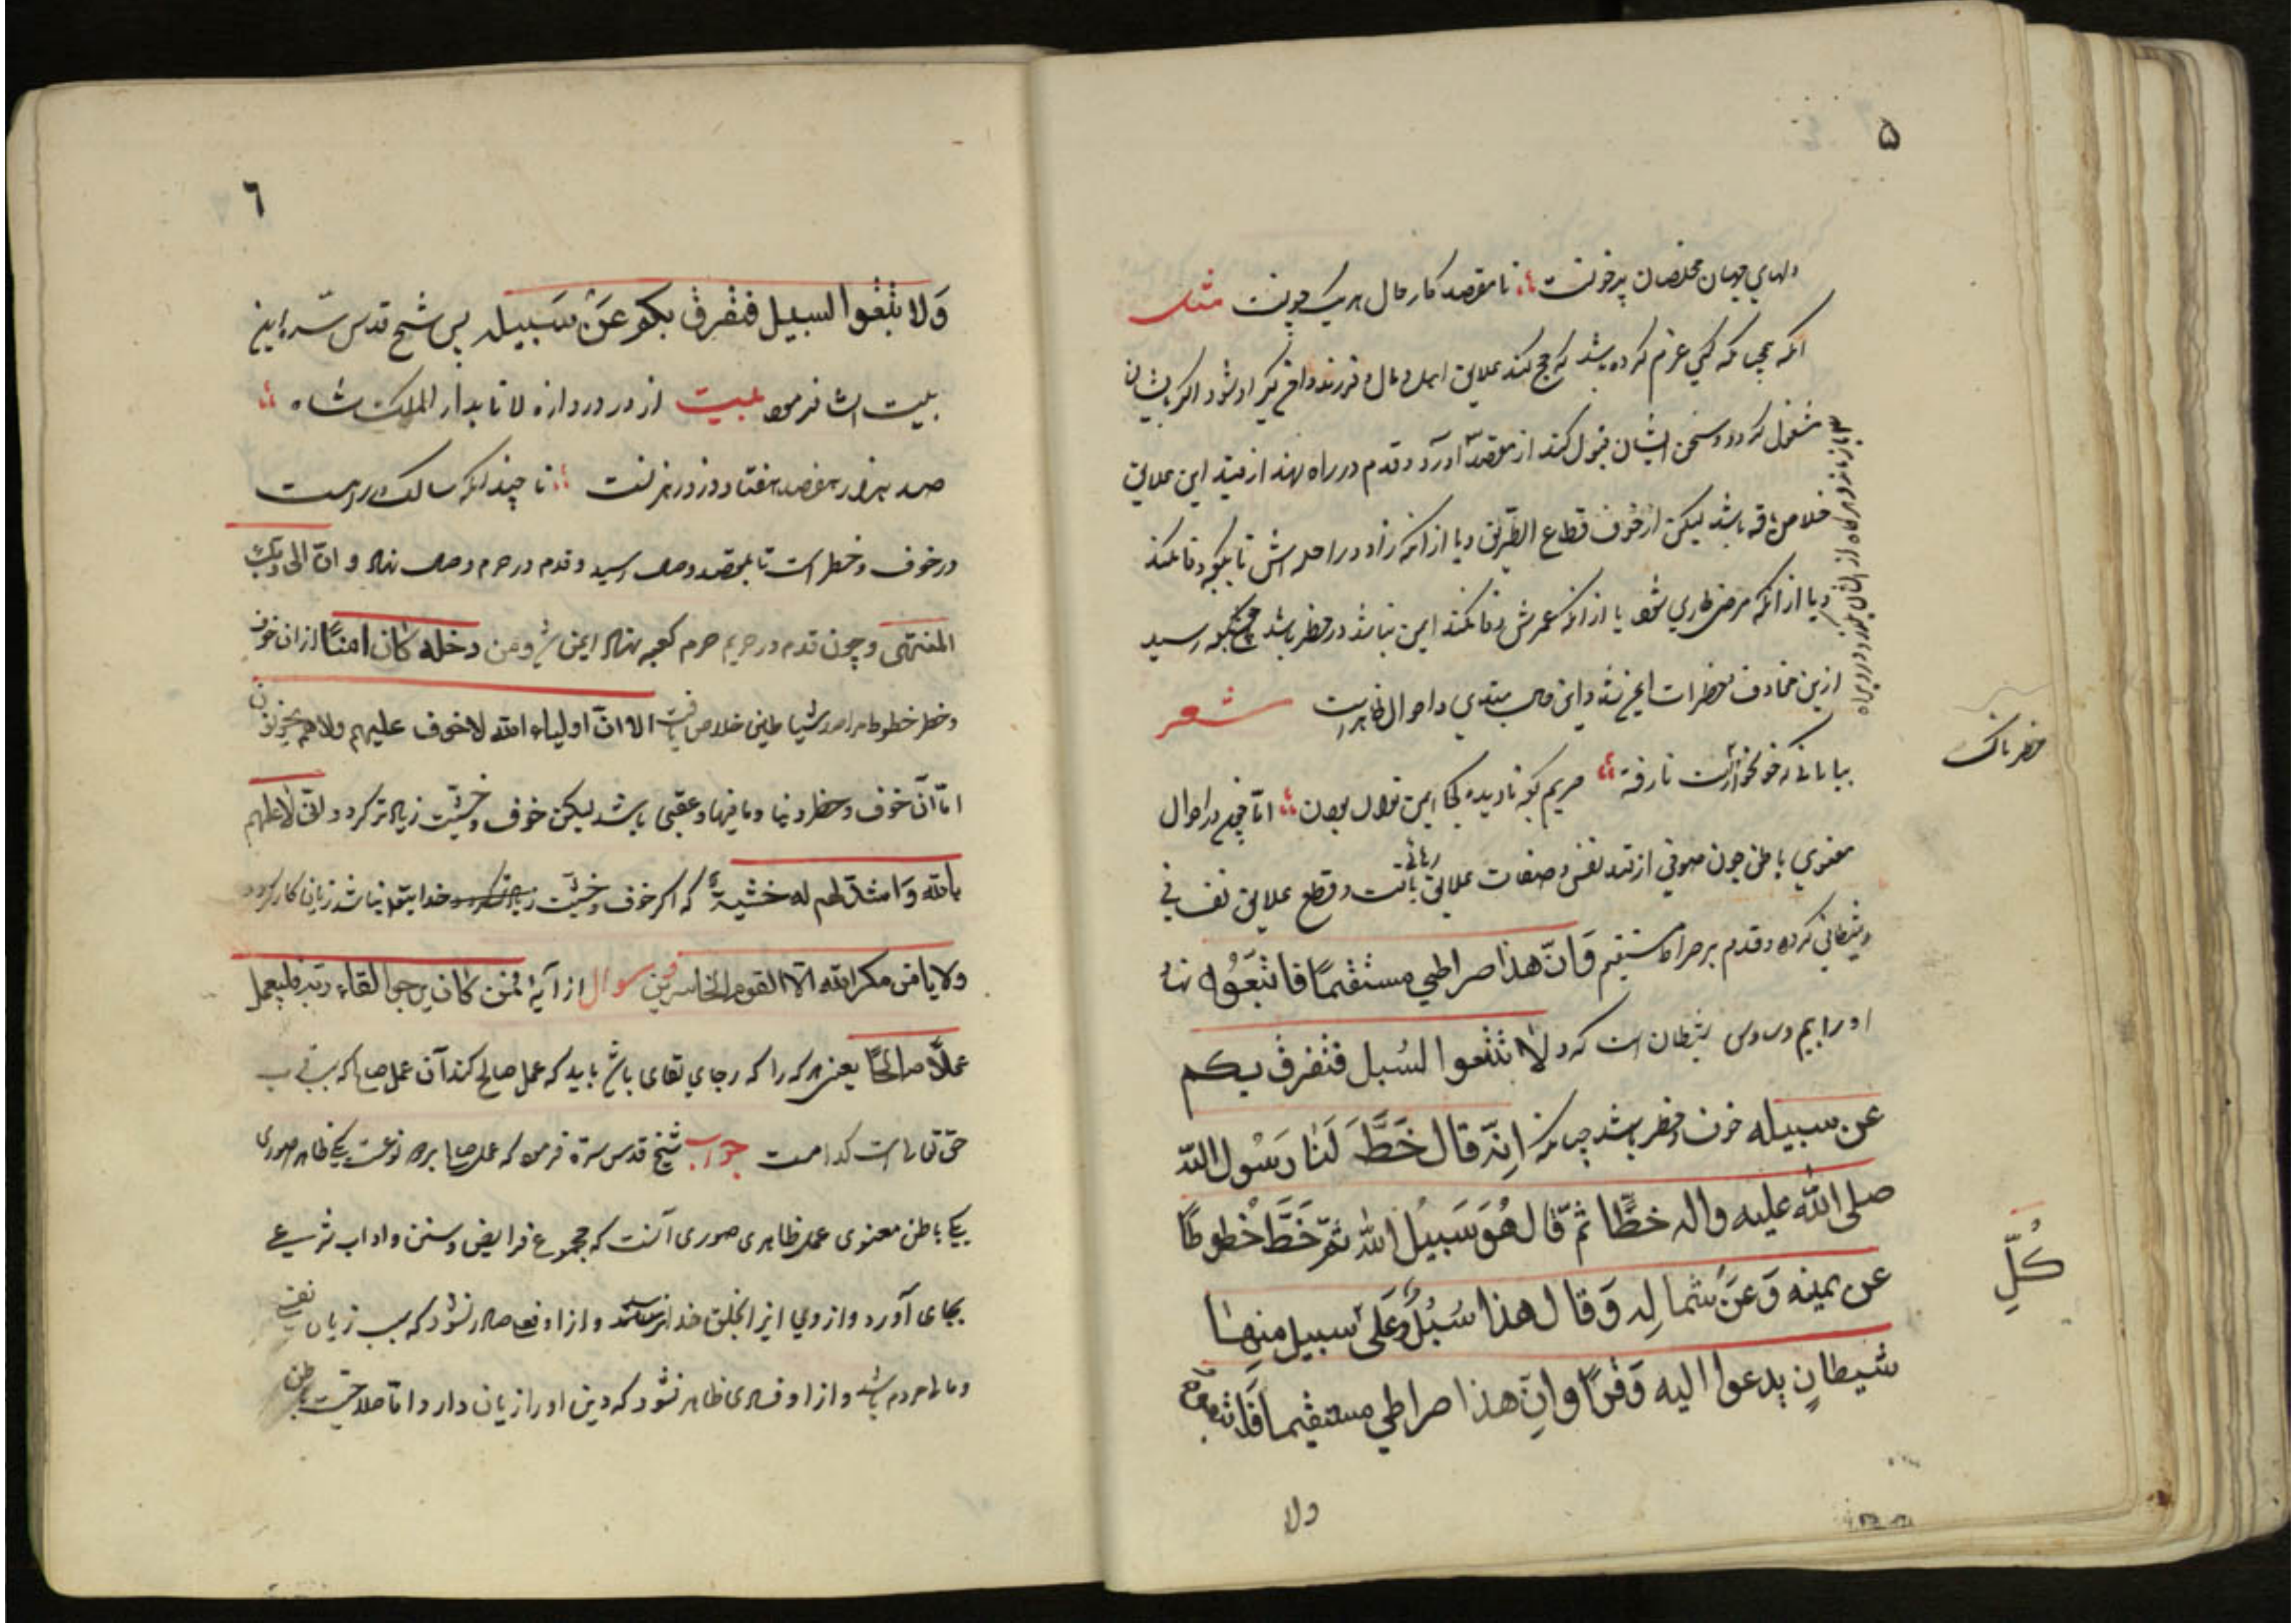 ۵
دلهای جهان مخلصان پرخونست تا مقصد کار حال هر یک چونست مثل
آنکه کسی عزم کرده باشد که حج کند علایق اهل و مال و فرزند دامن گیر او شود اگر بایشان
مشغول گردد و سخن ایشان قبول کند از مقصد و قدم در راه نهد از قید این علایق
خلاص یافته باشد لیکن از خوف قطاع الطریق و یا از آنکه زاد و راحله اش تا بکعبه وفا نکند
و یا از آنکه مرض طاری شود یا از آنکه عمرش وفا نکند ایمن نباشد در خطر باشد چون بکعبه رسید
ازین مخاوف خطرات ایمن شد و این حال مبتدی و احوال ظاهرست شعر
بیابانی که خونخوارست نارفته حریم کعبه نادیده کجا ایمن توان بودن اما در احوال
معنوی باطن چون صوفی از قید نفس و صفات علایق و قطع علایق نفسانی
و شیطانی کرده و قدم بر صراط مستقیم وَانّ هذا صراطي مستقیمًا فاتبعوه نهاد
او را بیم وساوس شیطان است که ولا تتبعوا السُبل فتفرق بكم
عن سبیله خوف و خطر باشد چنانکه انّه قال خَطَّ لَنا رَسُول الله
صلی الله علیه واله خطًّا ثمّ قال هُوَ سَبیلُ الله ثمّ خَطَّ خُطوطًا
عن یمینه وَعَن شمالِه وَقال هذا سُبُلٌ وَعَلی سبیل منها
شیطانٍ یدعوا الیه وَقرأ وانّ هذا صراطي مستقیما فاتبعوه
ولا
خطرناک
كُلِّ
٦
وَلا تتبعوا السبیل فتفرق بکم عَن سَبیله پس شیخ قدس سرّه این
بیت انشا فرمود بیت از در دروازه لا تا بدار الملک شاه
صد هزار هفصد هفتاد دزد رهزنست تا چندانکه سالک در راهست
در خوف و خطر است تا بمقصد وصال رسید و قدم در حرم وصال نهاد و انّ الی ربّک
المنتهی و چون قدم در حریم حرم کعبه نهاد ایمن شد ومن دخله کان امنًا از ان خوف
و خطر خطوط مراصد شیاطین خلاص یافت الا انّ اولیاء الله لا خوف علیهم ولا هم یحزنون
امّا آن خوف و خطر دنیا وما فیها و عقبی باشد لیکن خوف و خشیّت زیاده تر گردد وانّی لاعلمهم
بالله وَاشدّهم له خشیة که اگر خوف و خشیّت خدایتعالی نباشد زیان کار گردد
ولا یامن مکر الله الّا القوم الخاسرین سوال از آیهٔ فمن کان یرجوا لقاء ربّه فلیعمل
عملًا صالحًا یعنی هر که را که رجای لقای باشد باید که عمل صالح کند آن عمل صالح که سبب
حق تعالی است کدامست جواب شیخ قدس سرّه فرمود که عمل صالح بر دو نوعست یکی ظاهر صوری
یکی باطن معنوی عمل ظاهری صوری آنست که مجموع فرایض و سنن و اداب شرعی
بجای آورد و از وی ایذا بخلق خدا نرسد و از او فعل صادر نشود که سبب زیان نفس
و مال مردم باشد و از او فسادی ظاهر نشود که دین او را زیان دارد و امّا صلاحیّت باطن